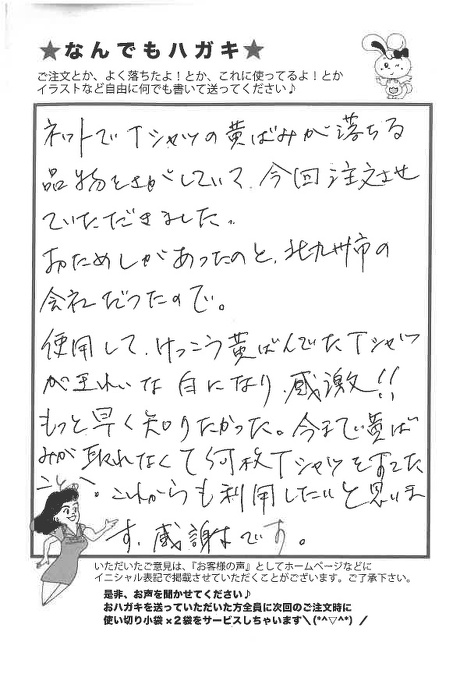 ★なんでもハガキ★
ご注文とか、よく落ちたよ！とか、これに使ってるよ！とか
イラストなど自由に何でも書いて送ってください♪
ネットでTシャツの黄ばみが落ちる
品物をさがしていて、今回注文させ
ていただきました。
おためしがあったのと、北九州市の
会社だったので。
使用して、けっこう黄ばんでいたTシャツ
がきれいな白になり、感激!!
もっと早く知りたかった。今まで黄ば
みが取れなくて何枚Tシャツをすてた
ことか。これからも利用したいと思いま
す、感謝です。
いただいたご意見は、『お客様の声』としてホームページなどに
イニシャル表記で掲載させていただくことがございます。ご了承下さい。
是非、お声を聞かせてください♪
おハガキを送っていただいた方全員に次回のご注文時に
使い切り小袋×2袋をサービスしちゃいます＼(*^▽^*)／